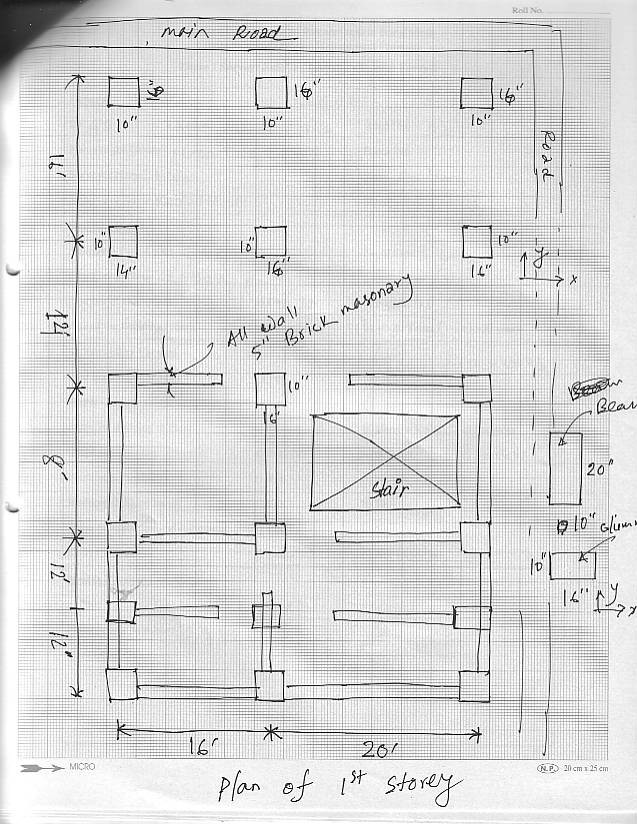 Roll No.
main Road
16"
16"
16"
10"
10"
10"
Road
10"
10"
10"
14"
16"
16"
y
x
12'
All wall
5" Brick masonary
10"
16'
Beam
20"
Stair
8'
10"
Column
10"
16"
y
x
12'
12'
16'
20'
MICRO
N.P. 20 cm x 25 cm
Plan of 1st storey